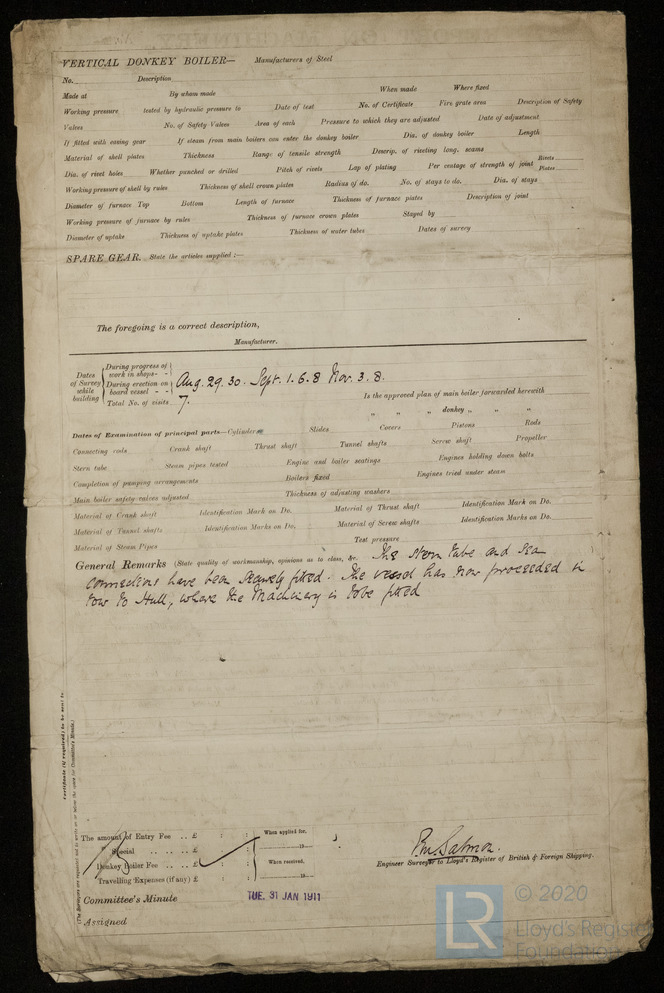 VERTICAL DONKEY BOILER— Manufacturers of Steel
No. Description
Made at By whom made When made Where fixed
Working pressure tested by hydraulic pressure to Date of test No. of Certificate Fire grate area Description of Safety
Valves No. of Safety Valves Area of each Pressure to which they are adjusted Date of adjustment
If fitted with easing gear If steam from main boilers can enter the donkey boiler Dia. of donkey boiler Length
Material of shell plates Thickness Range of tensile strength Descrip. of riveting long. seams
Dia. of rivet holes Whether punched or drilled Pitch of rivets Lap of plating Per centage of strength of joint Rivets
Plates
Working pressure of shell by rules Thickness of shell crown plates Radius of do. No. of stays to do. Dia. of stays
Diameter of furnace Top Bottom Length of furnace Thickness of furnace plates Description of joint
Working pressure of furnace by rules Thickness of furnace crown plates Stayed by
Diameter of uptake Thickness of uptake plates Thickness of water tubes Dates of survey
SPARE GEAR. State the articles supplied :—
The foregoing is a correct description,
Manufacturer.
Dates of Survey while building
During progress of work in shops - -
During erection on board vessel - -
Total No. of visits
Aug. 29. 30. Sept. 1. 6. 8 Nov. 3. 8.
7.
Is the approved plan of main boiler forwarded herewith
" " " donkey " " "
Dates of Examination of principal parts—Cylinders Slides Covers Pistons Rods
Connecting rods Crank shaft Thrust shaft Tunnel shafts Screw shaft Propeller
Stern tube Steam pipes tested Engine and boiler seatings Engines holding down bolts
Completion of pumping arrangements Boilers fixed Engines tried under steam
Main boiler safety valves adjusted Thickness of adjusting washers
Material of Crank shaft Identification Mark on Do. Material of Thrust shaft Identification Mark on Do.
Material of Tunnel shafts Identification Marks on Do. Material of Screw shafts Identification Marks on Do.
Material of Steam Pipes Test pressure
General Remarks (State quality of workmanship, opinions as to class, &c. The stern tube and sea
connections have been securely fitted. The vessel has now proceeded in
tow to Hull, where the Machinery is to be fitted
Certificate (if required) to be sent to
(The Surveyors are requested not to write on or below the space for Committee's Minute.)
The amount of Entry Fee .. £ : :
Special .. .. £ : :
Donkey Boiler Fee .. .. £ : :
Travelling Expenses (if any) £ : :
When applied for,
19
When received,
19
Committee's Minute
TUE. 31 JAN 1911
Assigned
Salmon.
Engineer Surveyor to Lloyd's Register of British & Foreign Shipping.
LR
© 2020
Lloyd's Register
Foundation